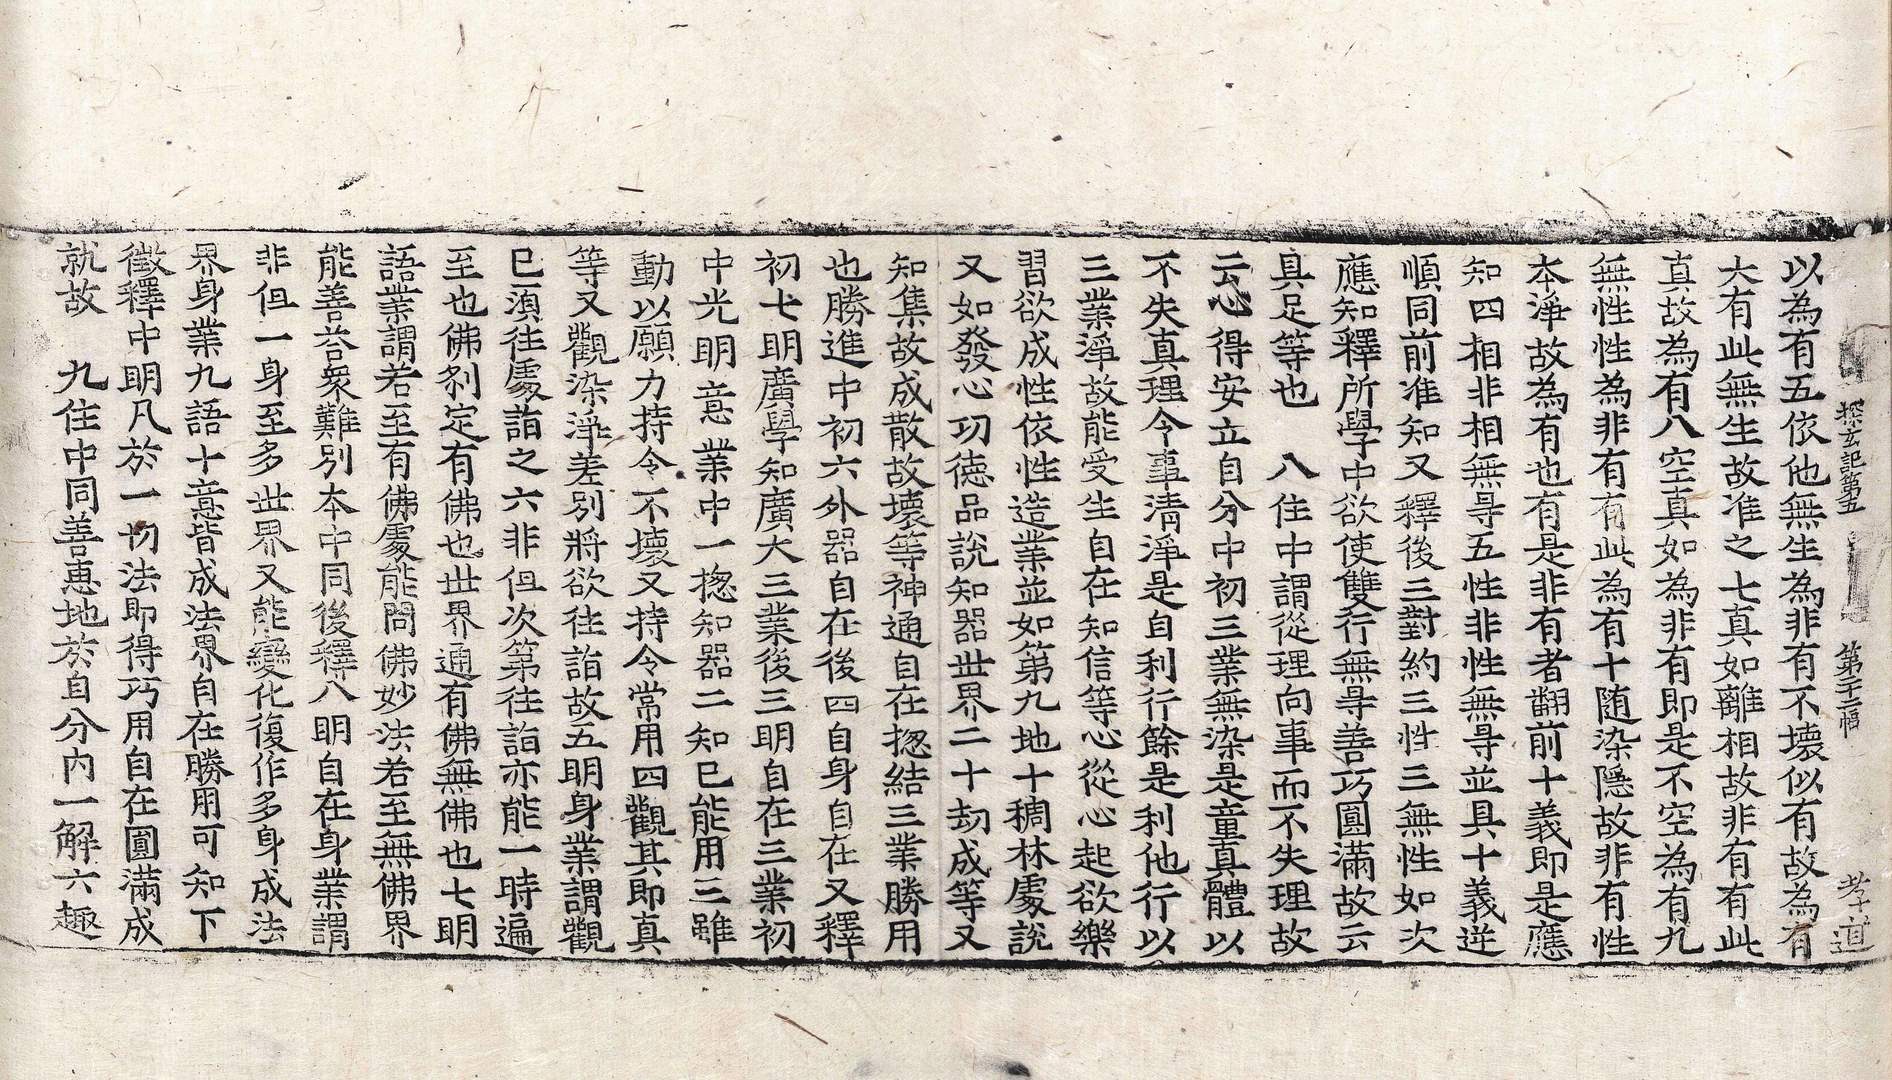 探玄記第五 第二十二幅 孝道
以為有五依他無生為非有不壞似有故為有
六有此無生故准之七真如離相故非有有此
真故為有八空真如為非有即是不空為有九
無性性為非有有此為有十随染隱故非有性
本淨故為有也有是非有者翻前十義即是應
知四相非相無㝵五性非性無㝵並具十義逆
順同前准知又釋後三對約三性三無性如次
應知釋所學中欲使雙行無㝵善巧圓滿故云
具足等也 八住中謂從理向事而不失理故
云心得安立自分中初三業無染是童真體以
不失真理令事清淨是自利行餘是利他行以
三業淨故能受生自在知信等心從心起欲樂
習欲成性依性造業並如第九地十稠林處說
又如發心功德品說知器世界二十劫成等又
知集故成散故壞等神通自在揔結三業勝用
也勝進中初六外器自在後四自身自在又釋
初七明廣學知廣大三業後三明自在三業初
中光明意業中一揔知器二知已能用三雖
動以願力持令不壞又持令常用四觀其即真
等又觀染淨差別將欲往詣故五明身業謂觀
已湏往處詣之六非但次第往詣亦能一時遍
至也佛刹定有佛也世界通有佛無佛也七明
語業謂若至有佛處能問佛妙法若至無佛界
能善荅衆難別本中同後釋八明自在身業謂
非但一身至多世界又能變化復作多身成法
界身業九語十意皆成法界自在勝用可知下
徵釋中明凡於一切法即得巧用自在圓滿成
就故 九住中同善恵地於自分内一解六趣